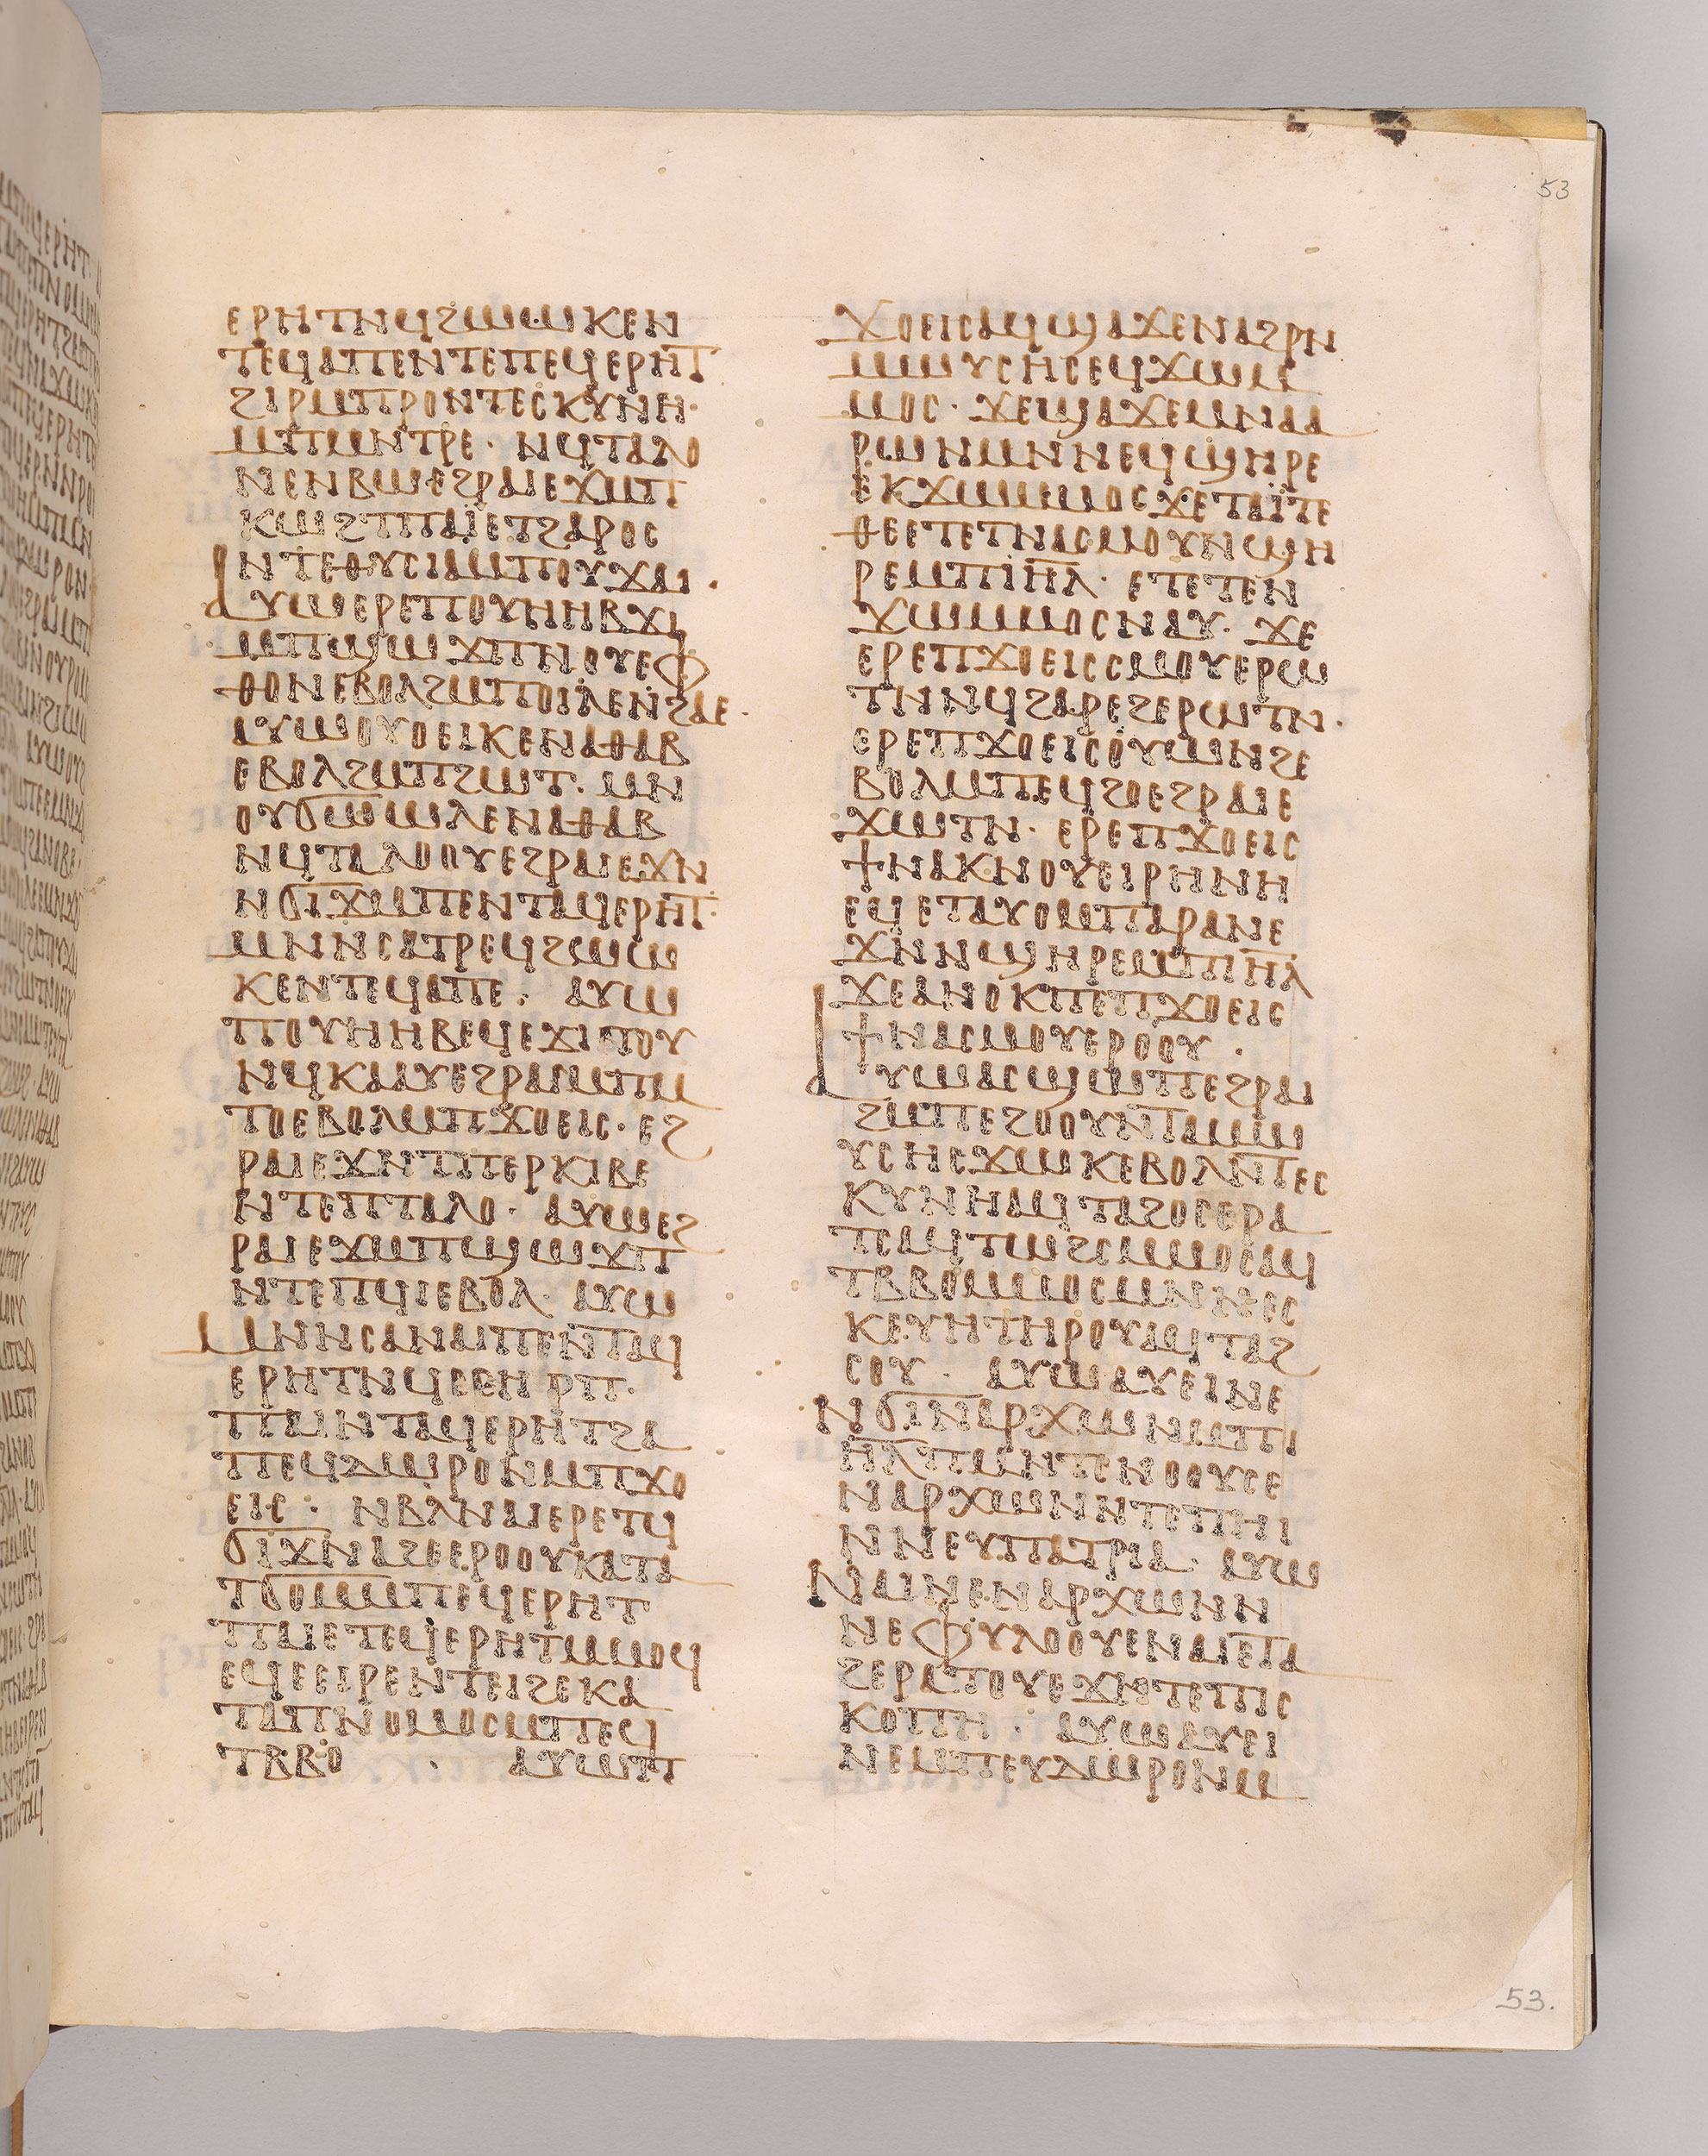 53
ⲉⲣⲏⲧⲛϥϩⲱⲱⲕⲉⲛ
ⲧⲉϥⲁⲡⲉⲛⲧⲉⲡⲉϥⲉⲣⲏⲧ
ϩⲓⲣⲙⲡⲣⲟⲛⲧⲉⲥⲕⲩⲛⲏ·
ⲙⲡⲙⲛⲧⲣⲉ· ⲛϥⲧⲁⲗⲟ
ⲛⲉⲛⲃⲱⲉϩⲣⲁⲓⲉϫⲙⲡ
ⲕⲱϩⲧⲡⲁⲓⲉⲧϩⲁⲣⲟⲥ
ⲛⲧⲉⲑⲩⲥⲓⲁⲙⲡⲟⲩϫⲁⲓ·
ⲁⲩⲱⲉⲣⲉⲡⲟⲩⲏⲏⲃϫⲓ
ⲙⲡϣⲱϫⲡⲛⲟⲩⲉϥ
ⲑⲟⲛⲉⲃⲟⲗϩⲙⲡⲟⲓⲗⲉⲛϩⲁⲉ·
ⲁⲩⲱⲟⲩⲟⲉⲓⲕⲉⲛⲁⲑⲁⲃ
ⲉⲃⲟⲗϩⲙⲡϩⲱⲧ· ⲙⲛ
ⲟⲩϭⲱⲱⲗⲉⲛⲁⲑⲁⲃ
ⲛϥⲧⲁⲗⲟⲟⲩⲉϩⲣⲁⲓⲉϫⲛ
ⲛϭⲓϫⲙⲡⲉⲛⲧⲁϥⲉⲣⲏⲧ·
ⲙⲛⲛⲥⲁⲧⲣⲉϥϩⲱⲱ
ⲕⲉⲛⲧⲉϥⲁⲡⲉ· ⲁⲩⲱ
ⲡⲟⲩⲏⲏⲃⲉϥⲉϫⲓⲧⲟⲩ
ⲛϥⲕⲁⲁⲩⲉϩⲣⲁⲓⲙⲡⲙ
ⲧⲟⲉⲃⲟⲗⲙⲡϫⲟⲉⲓⲥ· ⲉϩ
ⲣⲁⲓⲉϫⲛⲧⲓⲧⲉⲣⲕⲓⲃⲉ
ⲛⲧⲉⲡⲧⲁⲗⲟ· ⲁⲩⲱⲉϩ
ⲣⲁⲓⲉϫⲙⲡϣⲱϫⲡ
ⲛⲧⲉⲡϥⲓⲉⲃⲟⲗ· ⲁⲩⲱ
ⲙⲛⲛⲥⲁⲛⲁⲓⲡⲉⲛⲧⲁϥ
ⲉⲣⲏⲧⲛϥⲥⲉⲏⲣⲡ·
ⲡⲁⲓⲛⲧⲁϥⲉⲣⲏⲧϩⲁ
ⲡⲉϥⲇⲱⲣⲟⲛⲙⲡϫⲟ
ⲉⲓⲥ· ⲛⲃⲗⲛⲁⲓⲉⲣⲉⲧϥ
ϭⲓϫⲛⲁϩⲉⲉⲣⲟⲟⲩⲕⲁⲧⲁ
ⲧϭⲟⲙⲙⲡⲉϥⲉⲣⲏⲧ
ⲡⲁⲓⲉⲧⲉϥⲉⲣⲏⲧⲙⲙⲟϥ
ⲉϥⲉⲉⲓⲣⲉⲛⲧⲉⲓϩⲉⲕⲁ
ⲧⲁⲡⲛⲟⲙⲟⲥⲙⲡⲉϥ
ⲧⲃⲃⲟ · ⲁⲩⲱⲡ
ϫⲟⲉⲓⲥⲁϥϣⲁϫⲉⲛⲁϩⲣⲛ
ⲙⲱⲩⲥⲏⲥⲉϥϫⲱⲙ
ⲙⲟⲥ· ϫⲉϣⲁϫⲉⲙⲛⲁⲁ
ⲣⲱⲛⲙⲛⲛⲉϥϣⲏⲣⲉ
ⲉⲕϫⲱⲙⲙⲟⲥϫⲉⲧⲁⲓⲧⲉ
ⲑⲉⲉⲧⲉⲧⲛⲁⲥⲙⲟⲩⲛϣⲏ
ⲣⲉⲙⲡⲓⲏⲗ· ⲉⲧⲉⲧⲉⲛ
ϫⲱⲙⲙⲟⲥⲛⲁⲩ· ϫⲉ
ⲉⲣⲉⲡϫⲟⲉⲓⲥⲥⲙⲟⲩⲉⲣⲱ
ⲧⲛⲛϥϩⲁⲣⲉϩⲉⲣⲱⲧⲛ·
ⲉⲣⲉⲡϫⲟⲉⲓⲥⲟⲩⲱⲛϩⲉ
ⲃⲟⲗⲙⲡⲉϥϩⲟⲉϩⲣⲁⲓⲉ
ϫⲱⲧⲛ· ⲉⲣⲉⲡϫⲟⲉⲓⲥ
ϯⲛⲁⲕⲛⲟⲩⲉⲓⲣⲏⲛⲏ
ⲉϥⲉⲧⲁⲩⲟⲙⲡⲁⲣⲁⲛⲉ
ϫⲛⲛϣⲏⲣⲉⲙⲡⲓⲏⲗ
ϫⲉⲁⲛⲟⲕⲡⲉⲡϫⲟⲉⲓⲥ
ϯⲛⲁⲥⲙⲟⲩⲉⲣⲟⲟⲩ·
ⲁⲩⲱⲁⲥϣⲱⲡⲉϩⲣⲁⲓ
ϩⲙⲡⲉϩⲟⲟⲩⲛⲧⲁⲙⲱ
ⲩⲥⲏⲥϫⲱⲕⲉⲃⲟⲗⲛⲧⲉⲥ
ⲕⲩⲛⲏⲁϥⲧⲁϩⲟⲥⲉⲣⲁ
ⲧⲥⲁϥⲧⲱϩⲥⲙⲙⲟⲥⲁϥ
ⲧⲃⲃⲟⲙⲙⲟⲥⲙⲛⲛⲉⲥ
ⲕⲉⲩⲏⲧⲏⲣⲟⲩⲁϥⲧⲁϩ
ⲥⲟⲩ· ⲁⲩⲱⲁⲩⲉⲓⲛⲉ
ⲛϭⲓⲛⲁⲣⲭⲱⲛⲙⲡⲓ
ⲏⲗⲡⲙⲛⲧⲥⲛⲟⲟⲩⲥⲉ
ⲛⲁⲣⲭⲱⲛⲛⲧⲉⲡⲏⲓ
ⲛⲛⲉⲩⲡⲁⲧⲣⲓⲁ· ⲁⲩⲱ
ⲛⲁⲓⲛⲉⲛⲁⲣⲭⲱⲛⲛ
ⲛⲉⲫⲩⲗⲟⲟⲩⲉⲛⲁⲓⲉⲧⲁ
ϩⲉⲣⲁⲧⲟⲩⲉϫⲛⲧⲉⲡⲓⲥ
ⲕⲟⲡⲏ· ⲁⲩⲱⲁⲩⲉⲓ
ⲛⲉⲙⲡⲉⲩⲇⲱⲣⲟⲛⲙ
53.